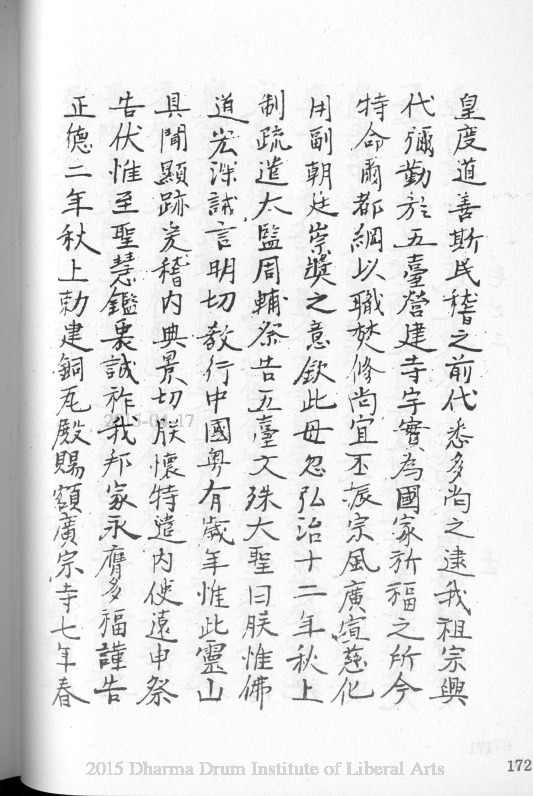 皇度道善斯民稽之前代悉多尚之逮我祖宗興
代彌勤於五臺營建寺宇實為國家祈福之所今
特命爾都綱以職焚修尚宜丕振宗風廣宣慈化
用副朝廷崇獎之意欽此毋忽弘治十二年秋上
制疏遣太監周輔祭告五臺文殊大聖曰朕惟佛
道宏深誠言明切教行中國粵有歲年惟此靈山
具聞顯跡爰稽內典景切朕懷特遣內使遠申祭
告伏惟至聖慧鑑衷誠祚我邦家永膺多福謹告
正德二年秋上勅建銅瓦殿賜額廣宗寺七年春
2015-04-17
2015 Dharma Drum Institute of Liberal Arts
172